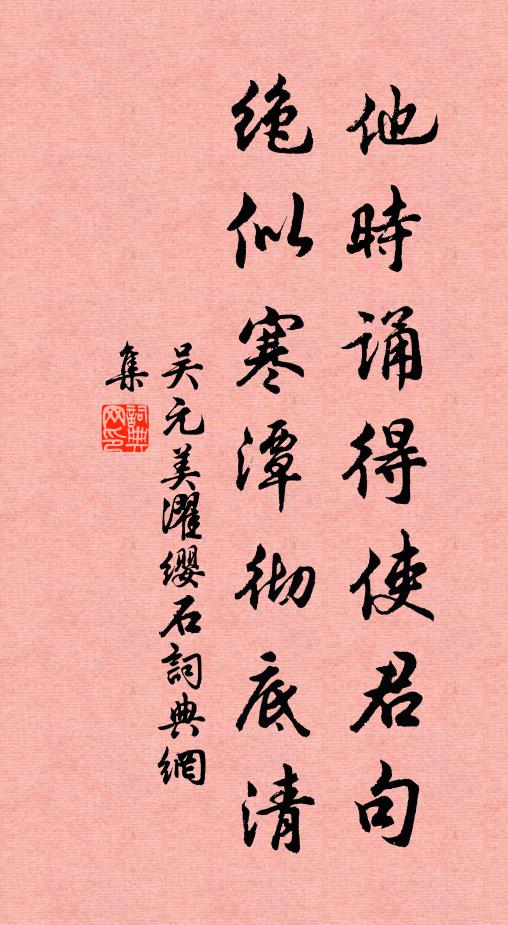 他時誦得使君句
绝似寒潭彻底清
吴元美濯缨石詞典網
集
詞典
网印